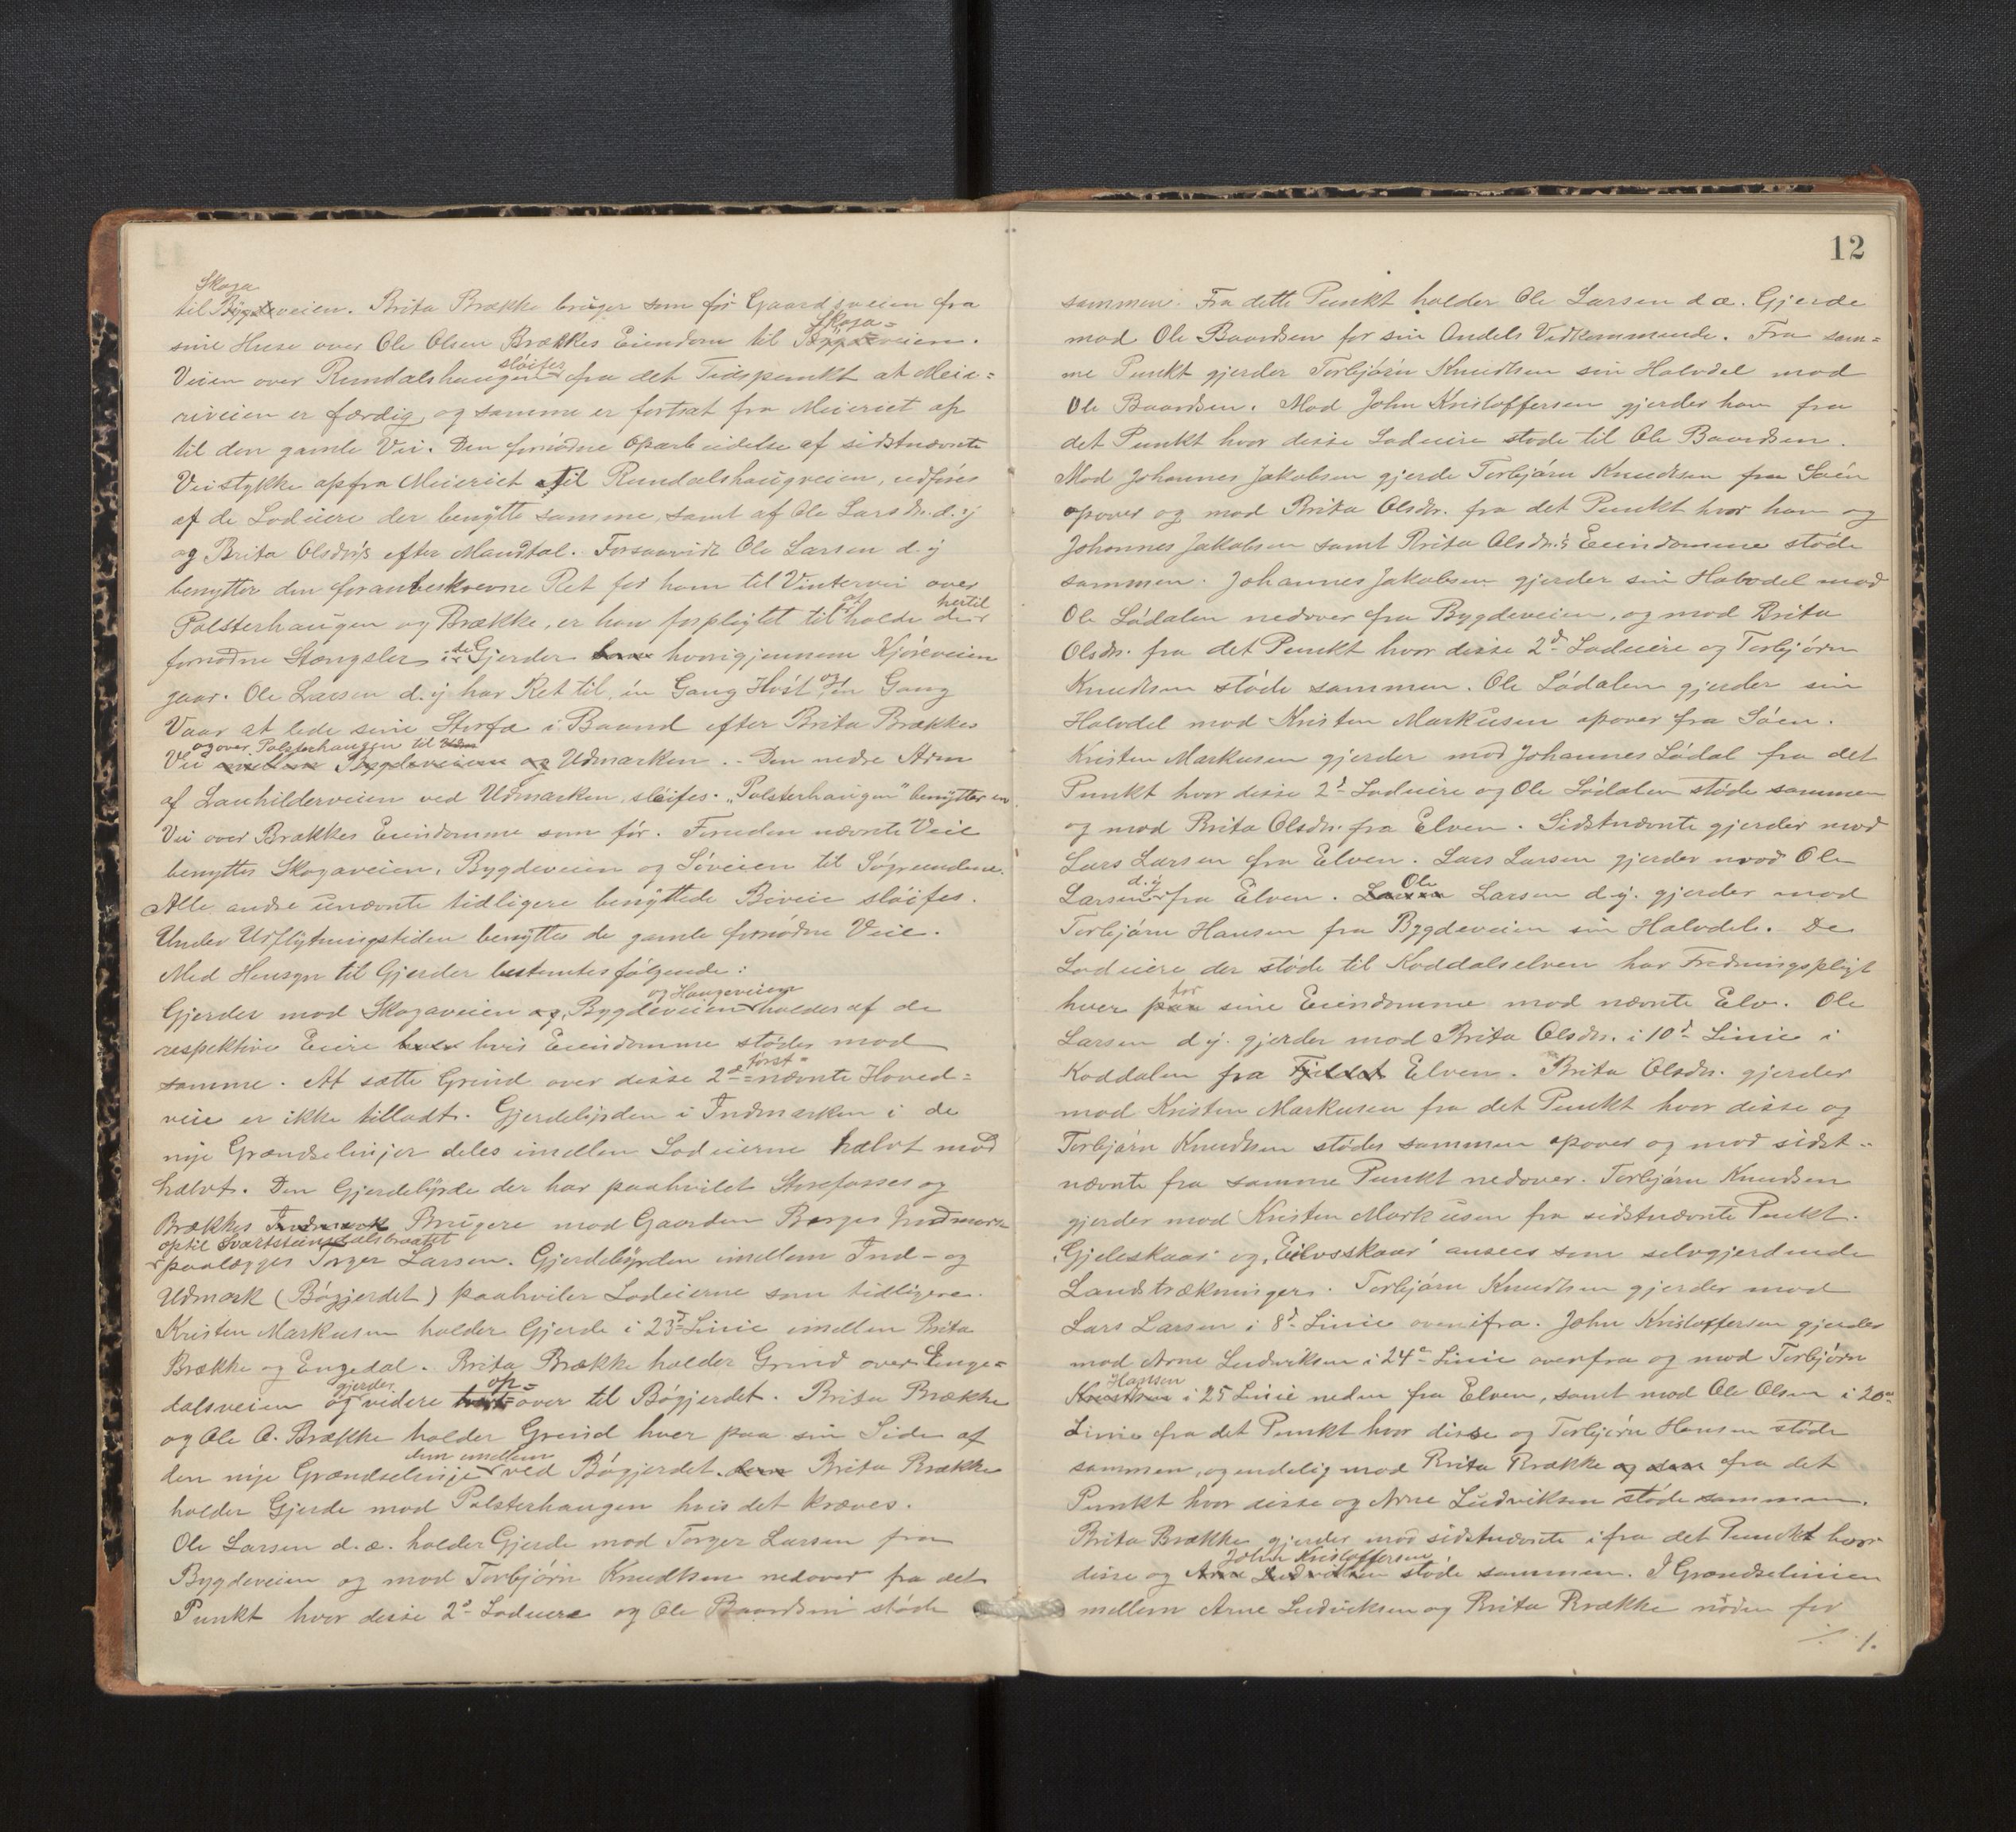 Skoga
til Bygdeveien. Brita Brække bruger som før Gaardsveien fra
Skoga=
sine Huse over Ole Olsen Brækkes Eiendom til Byggdeveien.
sløifes
Veien over Rundalshaugen fra det Tidspunkt at Meie=
riveien er færdig, og samme er fortsat fra Meieriet op
til den gamle Vei. Den fornødne Oparbeidelse af sidstnævnte
Veistykke opfra Meieriet til Rundalshaugveien, udføres
af de Lodeiere der benytte samme, samt af Ole Larsen d.y
og Brita Olsdr's efter Mandtal. Forsaavidt Ole Larsen d.y
benytter den foranbeskrevne Ret for ham til Vintervei over
at hertil
Palsterhaugen og Brække, er han forpligtet til holde de
fornødne Stængsler i de Gjerder hvorigjennem Kjøreveien
gaar. Ole Larsen d.y har Ret til én Gang Høst og én Gang
Vaar at lede sine Storfæ i Baand efter Brita Brækkes
og over Palsterhaugen til Udm
Vei mellem Bygdeveien og Udmarken. - Den nedre Arm
af Lauhilderveien ved Udmarken sløifes. "Palsterhaugen" benytter en
Vei over Brækkes Eiendomme som før. Foruden nævnte Veie
benyttes Skogaveien, Bygdeveien og Søveien til Søgrundene.
Alle andre unævnte tidligere benyttede Biveie sløifes.
Under Udflytningstiden benyttes de gamle fornødne Veie.
Med Hensyn til Gjerder bestemtes følgende:
og Haugeveien
Gjerder mod Skogaveien og Bygdeveien holdes af de
respektive Eiere hvis Eiendomme støder mod
først=
samme. At sætte Grind over disse 2de =nævnte Hoved=
veie er ikke tilladt. Gjerdebyrden i Indmarken i de
nye Grændselinjer deles imellem Lodeierne halvt mod
halvt. Den Gjerdebyrde der har paahvilet Storefosses og
Brækkes Indmark Brugere mod Gaarden Berges Indmark
optil Svartsteinsdalsbraatet
paalægges Torger Larsen. Gjerdebyrden imellem Ind- og
Udmark (Bøgjerdet) paahviler Lodeierne som tidligere.
Kristen Markusen holder Gjerde i 23d Linie imellem Brita
Brække og Engedal. Brita Brække holder Grind over Enge=
gjerder op=
dalsveien og videre over til Bøgjerdet. Brita Brække
og Ole O. Brække holder Grind hver paa sin Side af
dem imellem
den nye Grændselinje ved Bøgjerdet. Brita Brække
holder Gjerde mod Palsterhaugen hvis det kræves.
Ole Larsen d.æ. holder Gjerde mod Torger Larsen fra
Bygdeveien og mod Torbjørn Knudtsen nedover fra det
Punkt hvor disse 2d Lodeiere og Ole Baardsen støde
12
sammen. Fra dette Punkt holder Ole Larsen d.æ. Gjerde
mod Ole Baardsen for sin Andels Vedkommende. Fra sam=
me Punkt gjerder Torbjørn Knudtsen sin Halvdel mod
Ole Baardsen. Mod John Kristoffersen gjerder han fra
det Punkt hvor disse Lodeiere støde til Ole Baardsen.
Mod Johannes Jakobsen gjerde Torbjørn Knudtsen fra Søen
opover og mod Brita Olsdr. fra det Punkt hvor han og
Johannes Jakobsen samt Brita Olsdr.'s Eiendomme støde
sammen. Johannes Jakobsen gjerder sin Halvdel mod
Ole Lødalen nedover fra Bygdeveien, og mod Brita
Olsdr. fra det Punkt hvor disse 2d Lodeiere og Torbjørn
Knudtsen støde sammen. Ole Lødalen gjerder sin
Halvdel mod Kristen Markusen opover fra Søen.
Kristen Markusen gjerder mod Johannes Lødal fra det
Punkt hvor disse 2d Lodeiere og Ole Lødalen støde sammen
og mod Brita Olsdr. fra Elven. Sidstnævnte gjerder mod
Lars Larsen fra Elven. Lars Larsen gjerder mod Ole
d.y Ole
Larsen fra Elven. Larsen Larsen d.y. gjerder mod
Torbjørn Hansen fra Bygdeveien sin Halvdel. De
Lodeiere der støde til Koddalselven har Fredningspligt
for
hver paa sine Eiendomme mod nævnte Elv. Ole
Larsen d.y. gjerder mod Brita Olsdr. i 10d Linie i
Koddalen fra Fjeldet Elven. Brita Olsdr. gjerder
mod Kristen Markusen fra det Punkt hvor disse og
Torbjørn Knudtsen støder sammen opover og mod sidst=
nævnte fra samme Punkt nedover. Torbjørn Knudsen
gjerder mod Kristen Markusen fra sidstnævnte Punkt.
"Gjeleskaar" og "Eilovsskaar" ansees som selvgjerdende
Landstrækninger. Torbjørn Knudtsen gjerder mod
Lars Larsen i 8d Linie ovenifra. John Kristoffersen gjerder
mod Arne Ludviksen i 24d Linie ovenfra og mod Torbjørn
Hansen
Knudtsen i 25 Linie neden fra Elven, samt mod Ole Olsen i 20de
Linie fra det Punkt hvor disse og Torbjørn Hansen støde
sammen, og endelig mod Brita Brække og fra det
Punkt hvor disse og Arne Ludviksen støde sammen.
Brita Brække gjerder mod sidstnævnte ifra det Punkt hvor
John Kristoffersen
disse og Arne Ludviksen støde sammen. I Grændselinien
mellem Arne Ludviksen og Brita Brække nøden for
./.